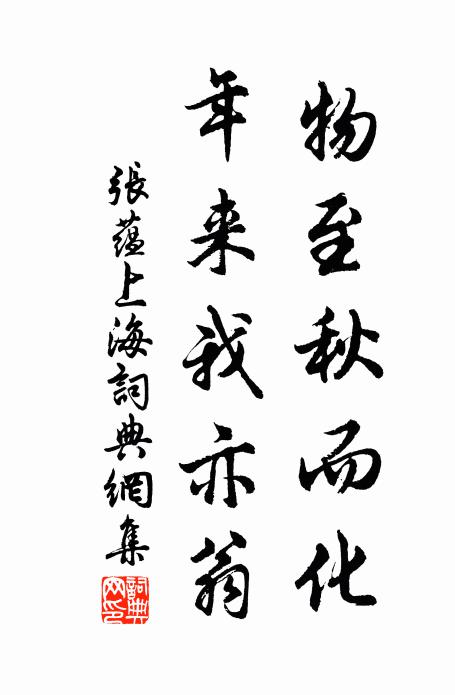 物至秋而化
年来我亦翁
張蕴上海詞典網集
詞典网印